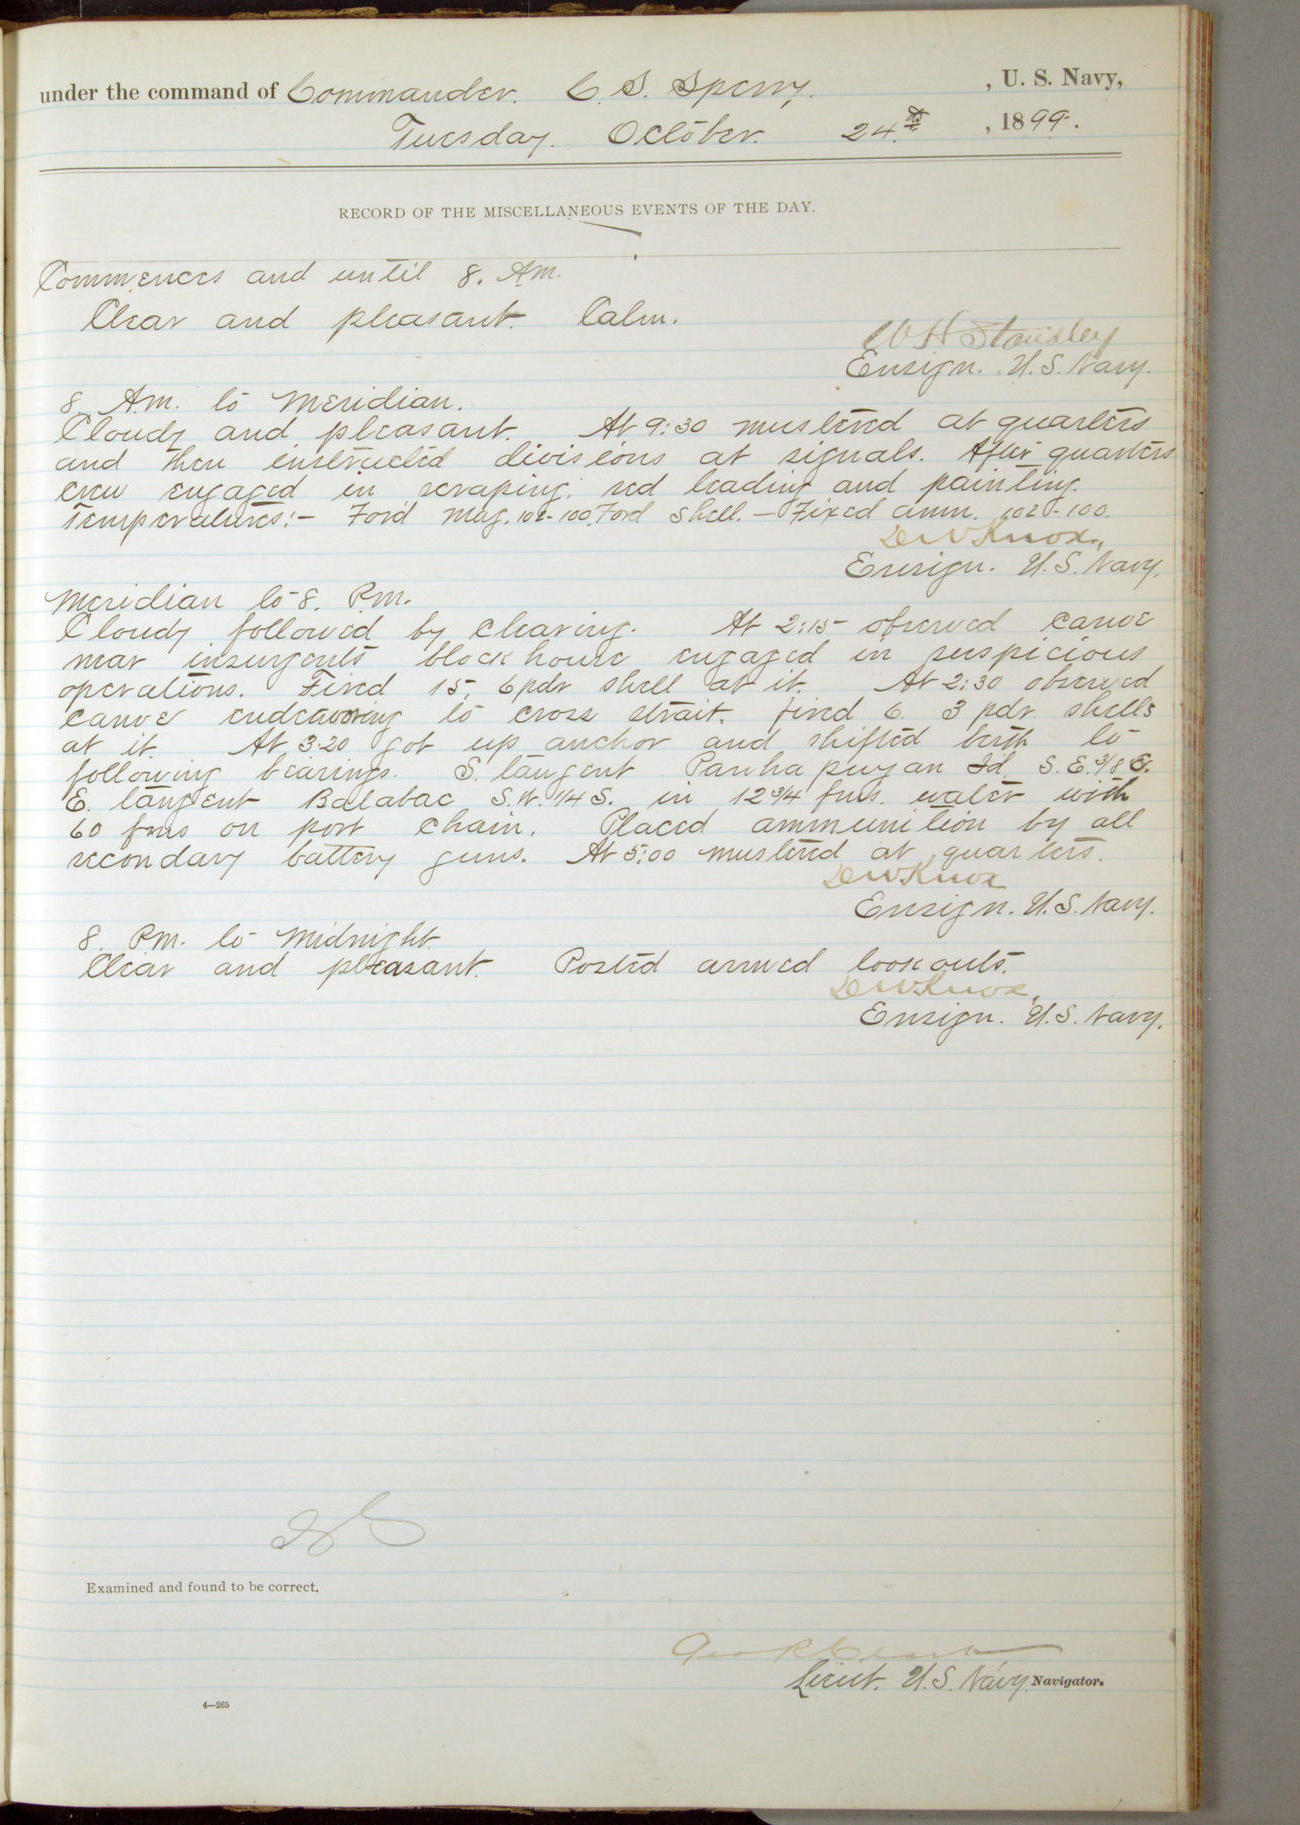 under the command of Commander. C. S. Sperry. , U. S. Navy,
Tuesday. October. 24.th , 1899.
RECORD OF THE MISCELLANEOUS EVENTS OF THE DAY.
Commences and until 8. Am.
Clear and pleasant. Calm.
W H Standley
Ensign. U.S. Navy.
8. A.m. to Meridian.
Cloudy and pleasant. At 9:30 mustered at quarters
and then instructed divisions at signals. After quarters
crew engaged in scraping, red leading and painting.
Temperatures:- Ford Mag. 102-100. Ford Shell. — Fixed amm. 102-100.
D W Knox,
Ensign. U.S. Navy.
Meridian to 8. P.m.
Cloudy followed by clearing. At 2:15 observed canoe
near insurgents block house engaged in suspicious
operations. Fired 15, 6 pdr shell at it. At 2:30 observed
canoe endeavoring to cross strait. fired 6. 3 pdr. shells
at it. At 3.20 got up anchor and shifted berth to
following bearings. S. tangent Id. S.E. 3/8 E.
E. tangent Balabac S.W. 1/4 S. in 12 3/4 fms. water with
60 fms on port chain. Placed ammunition by all
secondary battery guns. At 5:00 mustered at quarters.
D W Knox
Ensign. U.S. Navy.
8. P.m. to Midnight.
Clear and pleasant. Posted armed lookouts.
D W Knox,
Ensign. U.S. Navy.
Examined and found to be correct.
Geo R Clark
Lieut. U.S. Navy. Navigator.
4—265